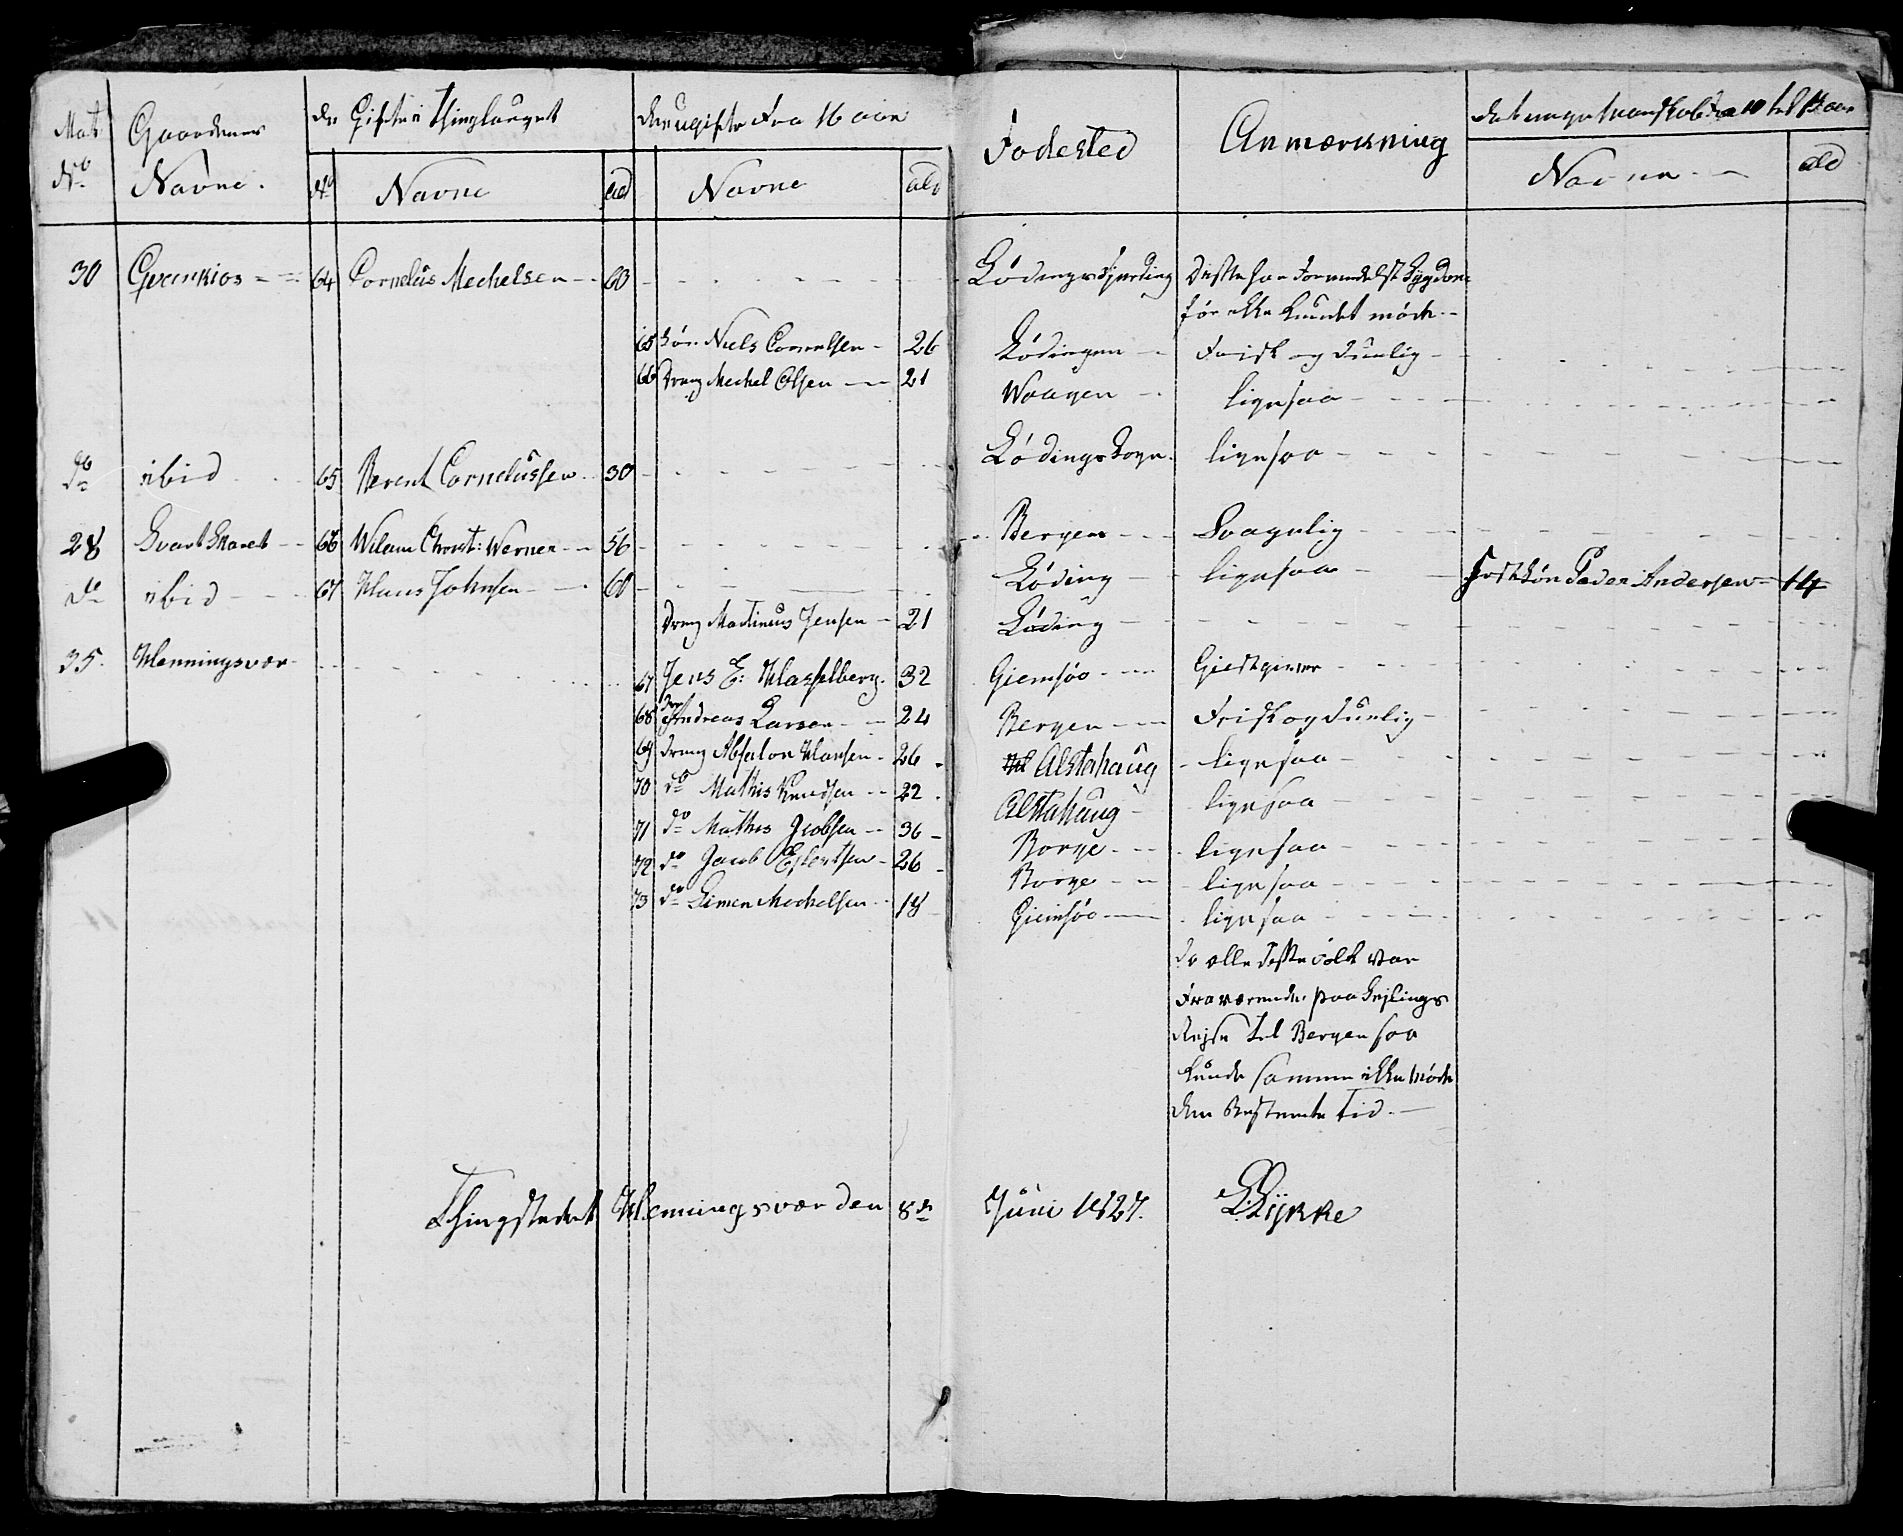 Mat No Gaardenes Navne. de Gifte i Thinglauget No Navne ald den ugifte Fra 16 aar Navne ald Fødested Anmærkning det unge Mandskab fra 10 til 16 aar Navne ald
30 Gvarnkios 64 Cornelius Mechelsen 60 Lødings Fjerding Dette har formedelst Sygdom
før ikke kundet møde.
65 Søn Niels Cornelsen 26 Lødingen Frisk og Duelig
66 Dreng Mechel Olsen 21 Waagen ligesaa
do ibid 65 Berent Cornelussen 30 Lødings Sogn ligesaa
28 Svart Skaret 66 Wilum Christ: Werner 56 Bergen Svagelig
do ibid 67 Hans Johnsen 60 Løding ligesaa Søn Peder Andersen 14
Dreng Martinus Jensen 21 Løding
35. Henningsvær 67 Jens E: Hasselberg 32 Giemsøe Giestgiver
68 Andreas Larsen 24 Bergen Frisk og Duelig
69 Dreng Absalon Hansen 26 Alstahaug ligesaa
70 do Mathis Knudsen 22 Alstahaug ligesaa
71 do Mathis Jcobsen 36 Borge ligesaa
72 do Jacob Ejlertsen 26 Borge ligesaa
73 do Simen Mechelsen 18 Giemsøe ligesaa
da alle disse folk var
Fraværende paa Sejlings
Rejse til Bergen saa
kunde samme ikke møde
den Bestemte Tid.
Thingstedet Henningsvær den 8de Juni 1827. Lykke